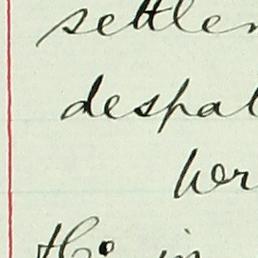 settlem
despat
her
this in